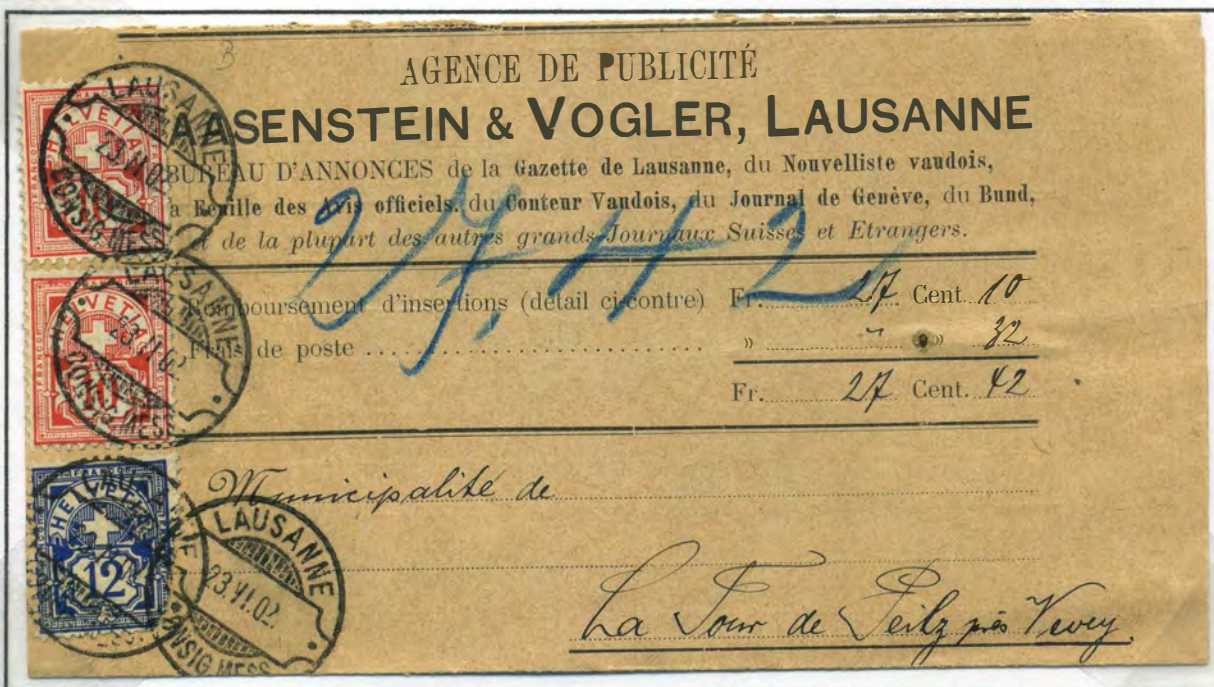 AGENCE DE PUBLICITÉ
AASENSTEIN & VOGLER, LAUSANNE
BUREAU D'ANNONCES de la Gazette de Lausanne, du Nouvelliste vaudois,
a Feuille des Avis officiels, du Conteur Vaudois, du Journal de Genève, du Bund,
et de la plupart des autres grands Journaux Suisses et Etrangers.
27,42
Remboursement d'insertions (détail ci-contre) Fr. 27 Cent. 10
Frais de poste » " » 32
Fr. 27 Cent. 42
Municipalité de
La Tour de Peilz près Vevey.
HELVETIA
FRANCO
10
LAUSANNE
23.VI.02
CONSIG. MESS.
HELVETIA
FRANCO
10
LAUSANNE
23.VI.02
CONSIG. MESS.
FRANCO
HELVETIA
12
LAUSANNE
LAUSANNE
23.VI.02.
CONSIG. MESS.